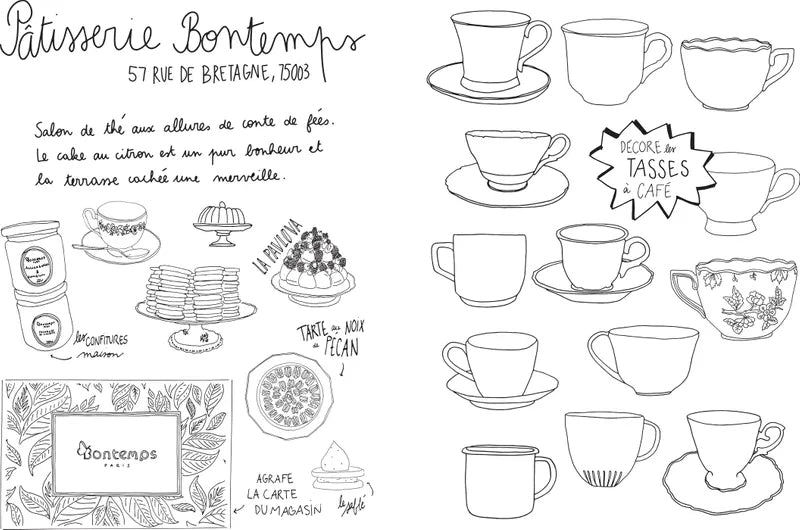 Pâtisserie Bontemps
57 RUE DE BRETAGNE, 75003
Salon de thé aux allures de conte de fées.
Le cake au citron est un pur bonheur et
la terrasse cachée une merveille.
LA PAVLOVA
les CONFITURES
maison
TARTE aux NOIX
de PÉCAN
Bontemps
PARIS
AGRAFE
LA CARTE
DU MAGASIN
le sablé
DÉCORE les
TASSES
à CAFÉ